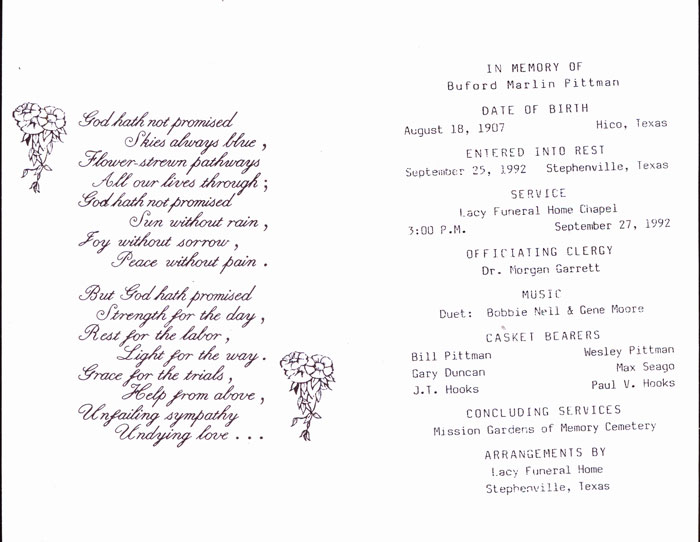 God hath not promised
Skies always blue,
Flower-strewn pathways
All our lives through;
God hath not promised
Sun without rain,
Joy without sorrow,
Peace without pain.
But God hath promised
Strength for the day,
Rest for the labor,
Light for the way.
Grace for the trials,
Help from above,
Unfailing sympathy
Undying love...
IN MEMORY OF
Buford Marlin Pittman
DATE OF BIRTH
August 18, 1907 Hico, Texas
ENTERED INTO REST
September 25, 1992 Stephenville, Texas
SERVICE
Lacy Funeral Home Chapel
3:00 P.M. September 27, 1992
OFFICIATING CLERGY
Dr. Morgan Garrett
MUSIC
Duet: Bobbie Neil & Gene Moore
CASKET BEARERS
Bill Pittman Wesley Pittman
Gary Duncan Max Seago
J.T. Hooks Paul V. Hooks
CONCLUDING SERVICES
Mission Gardens of Memory Cemetery
ARRANGEMENTS BY
Lacy Funeral Home
Stephenville, Texas